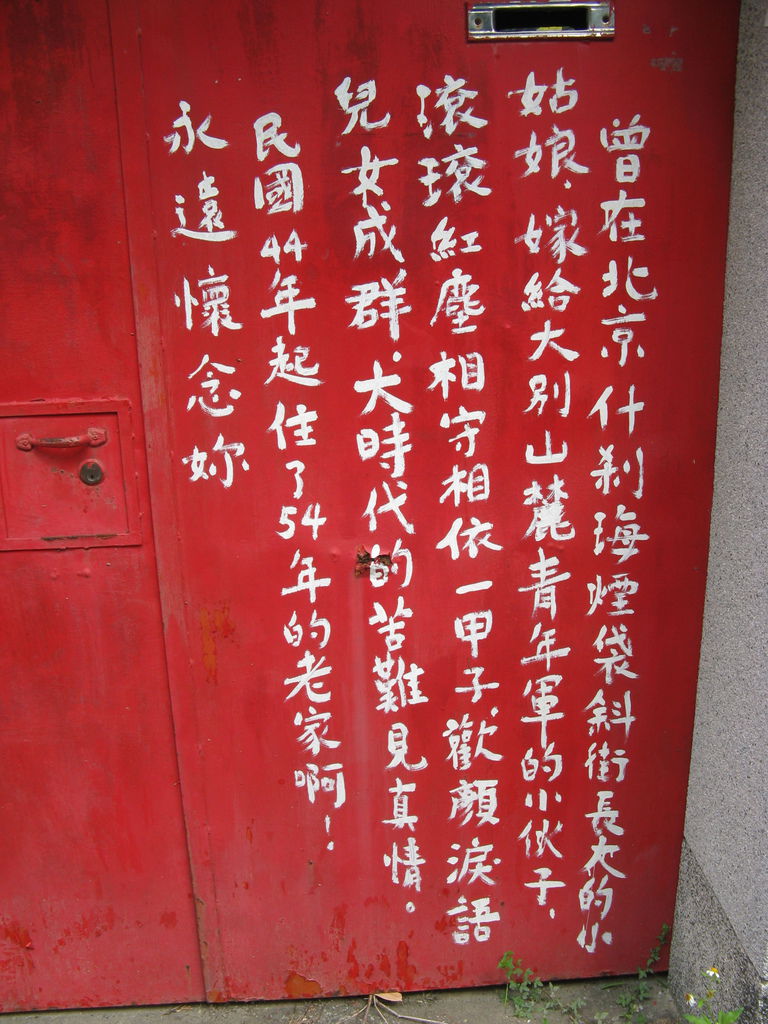 曾在北京什刹海煙袋斜街長大的小
姑娘，嫁給大别山麓青年軍的小伙子，
滾滾紅塵相守相依一甲子，歡顏淚語
兒女成群．大時代的苦難見真情。
民國44年起住了54年的老家啊！
永遠懷念妳